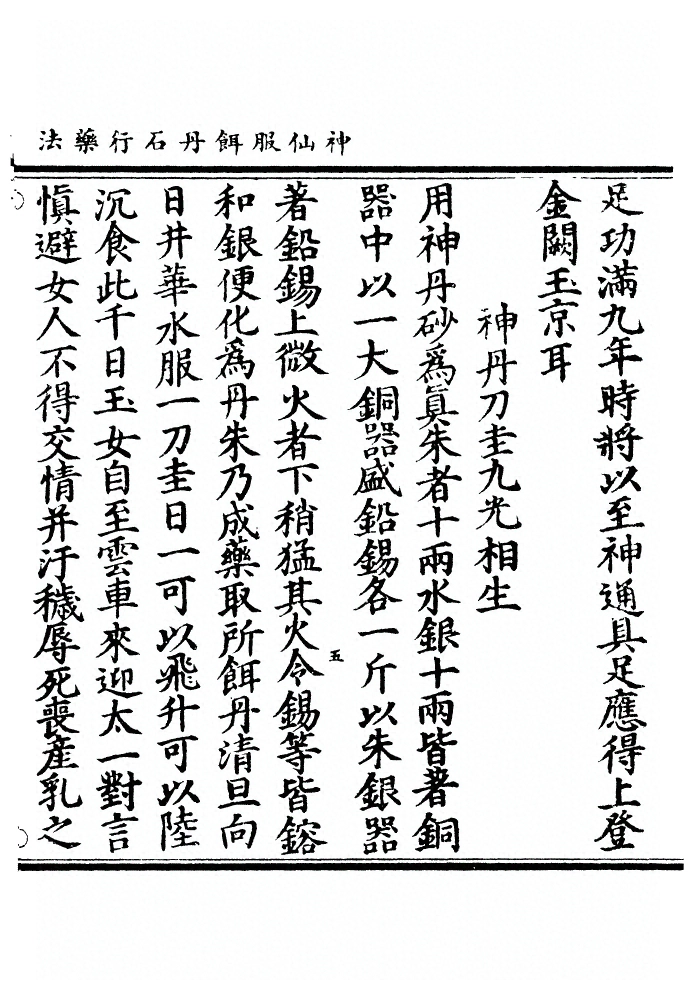 神仙服餌丹石行藥法
足功滿九年時將以至神通具足應得上登
金闕玉京耳
神丹刀圭九光相生
用神丹砂爲眞朱者十兩水銀十兩皆著銅
器中以一大銅器盛鉛錫各一斤以朱銀器
著鉛錫上微火者下稍猛其火令錫等皆鎔
五
和銀便化爲丹朱乃成藥取所餌丹清旦向
日井華水服一刀圭日一可以飛升可以陸
沉食此千日玉女自至雲車來迎太一對言
愼避女人不得交情并汙穢辱死喪產乳之